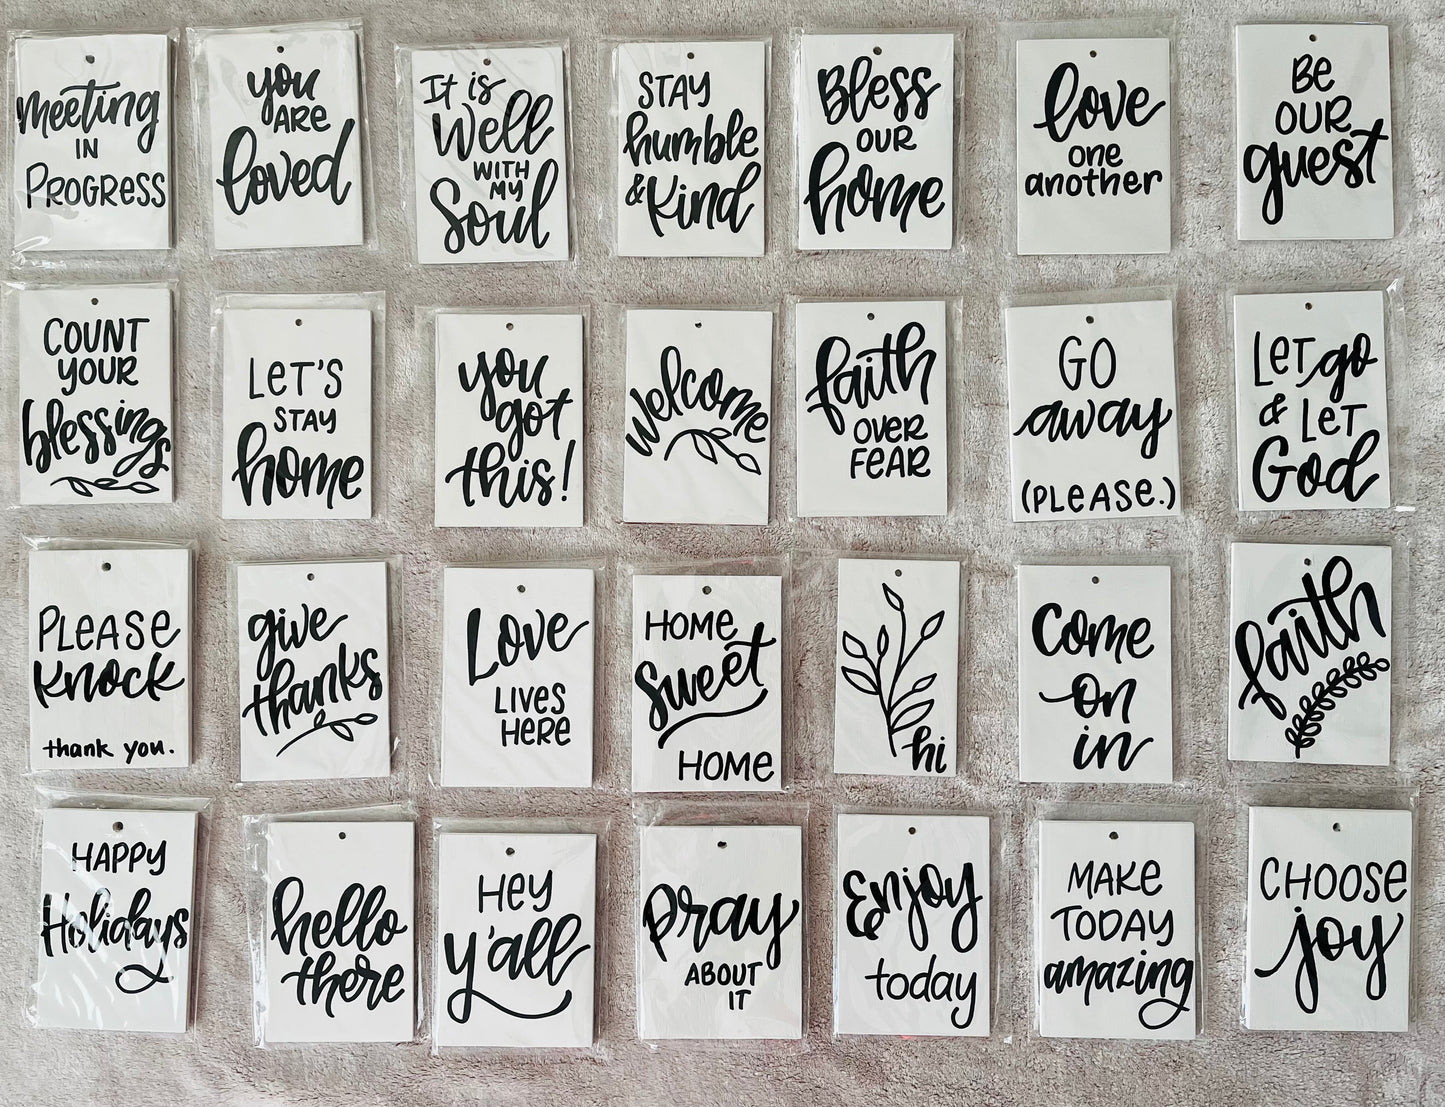 meeting
IN
PROGRESS
you
ARE
loved
It is
Well
WITH
MY
Soul
STAY
humble
& Kind
Bless
OUR
home
love
one
another
BE
OUR
guest
COUNT
YOUR
blessings
LET'S
STAY
home
you
got
this!
welcome
faith
OVER
FEAR
GO
away
(PLEASE.)
LET go
& LET
God
PLEASE
Knock
thank you.
give
thanks
Love
LIVES
HERE
HOME
Sweet
HOME
hi
Come
on
in
faith
HAPPY
Holidays
hello
there
HEY
y'all
Pray
ABOUT
IT
Enjoy
today
MAKE
TODAY
amazing
CHOOSE
joy